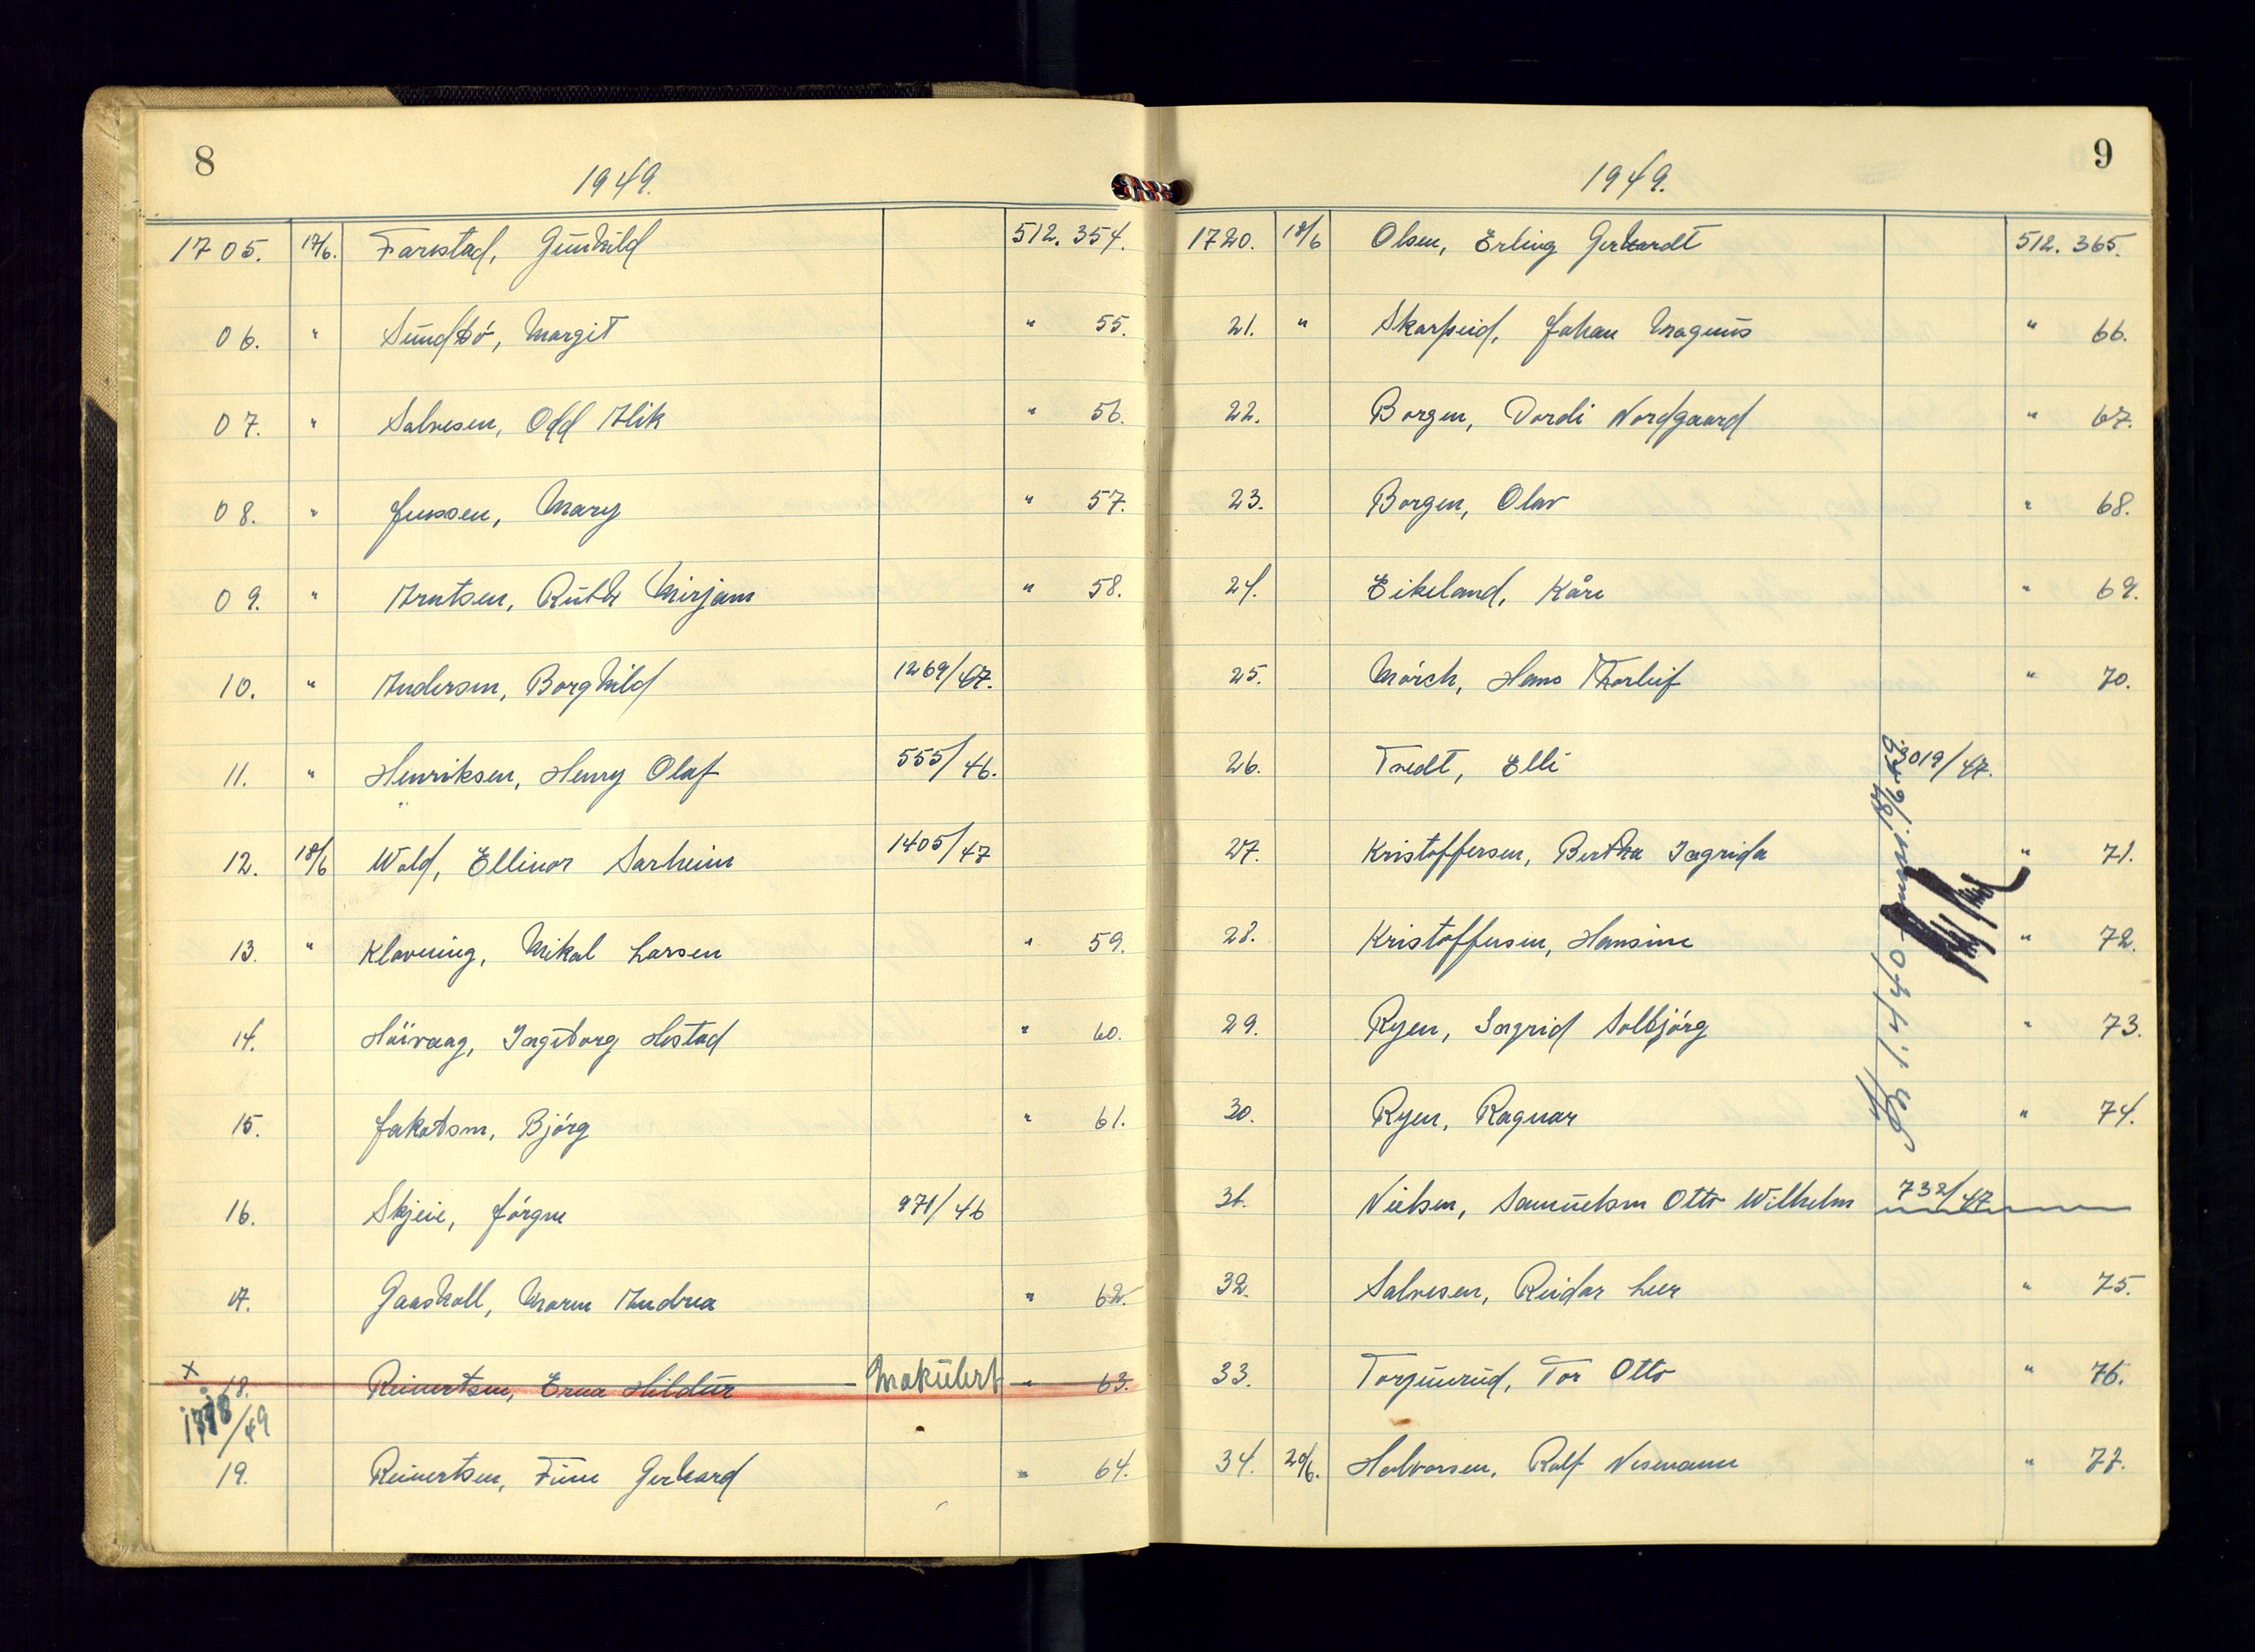 8
1949.
1705. 17/6. Farstad, Gunhild 512.354.
06. " Sundbö, Margit " 55.
07. " Salvesen, Odd Alik " 56.
08. " Jenssen, Mary " 57.
09. " Arntsen, Ruth Mirjam " 58.
10. " Andersen, Borghild 1269/47.
11. " Henriksen, Henry Olaf 555/46.
12. 18/6 Wold, Ellinor Sarheim 1405/47
13. " Klovning, Mikal Larsen " 59.
14. Höivaag, Ingeborg Hestad " 60.
15. Jakobsen, Bjørg " 61.
16. Skjeie, Jörgine 971/46
17. Gaasholl, Maren Andrea " 62.
x 18. Reinertsen, Erna Hildur Makulert " 63.
/49
19. Reinertsen, Finn Gerhard " 64.
9
1949.
1720. 18/6 Olsen, Erling Gerhardt 512.365.
21. " Skarpeid, Johan Magnus " 66.
22. Borgen, Dordi Nordgaard " 67.
23. Borgen, Olav " 68.
24. Eikeland, Kåre " 69.
25. Mörch, Hans Thorleif " 70.
26. Tvedt, Elli 3019/47.
27. Kristoffersen, Bertha Ingrida " 71.
28. Kristoffersen, Hansine " 72.
29. Ryen, Ingrid Solbjörg " 73.
30. Ryen, Ragnar " 74.
31. Nielsen, Samuelsen Otto Wilhelm 732/47
32. Salvesen, Reidar Leer " 75.
33. Torjusrud, Tor Otto " 76.
34. 20/6. Halvorsen, Rolf Nesmann " 77.
18/6.49.